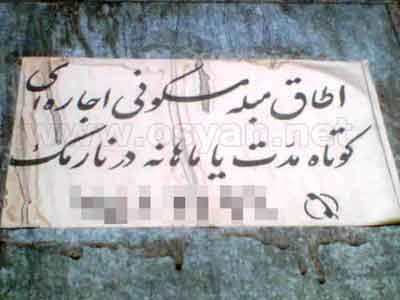 اطاق مبله مسکونی اجاره ای
کوتاه مدت یا ماهانه در نارمک
www.osyan.net